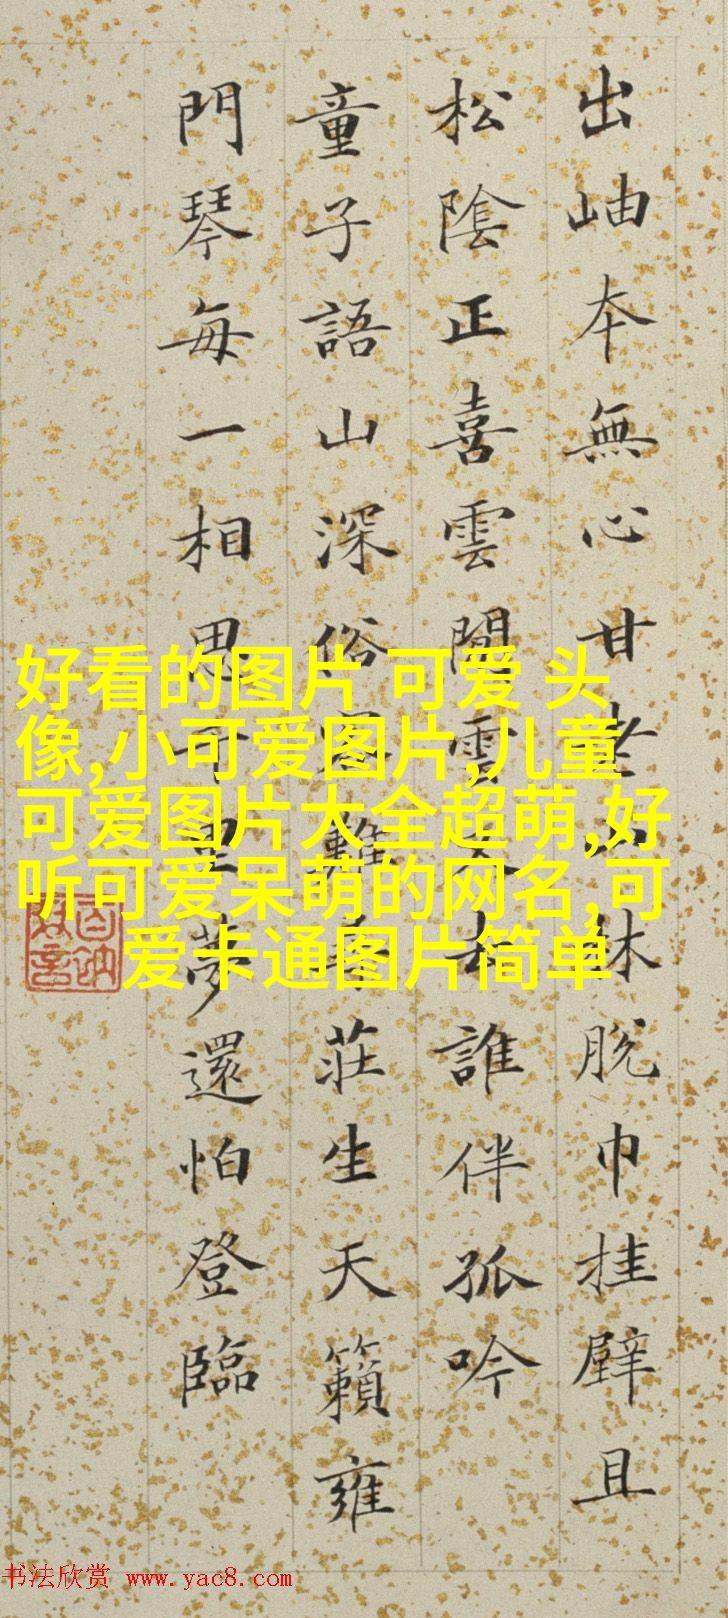 出岫本無心甘老山林脫巾挂壁且
松陰正喜雲閒雲又去誰伴孤吟
童子語山深俗客難尋莊生天籟雍
門琴每一相思千里夢還怕登臨
好看的图片 可爱 头
像,小可爱图片,儿童
可爱图片大全超萌,好
听可爱呆萌的网名,可
爱卡通图片简单
书法欣赏 www.yac8.com